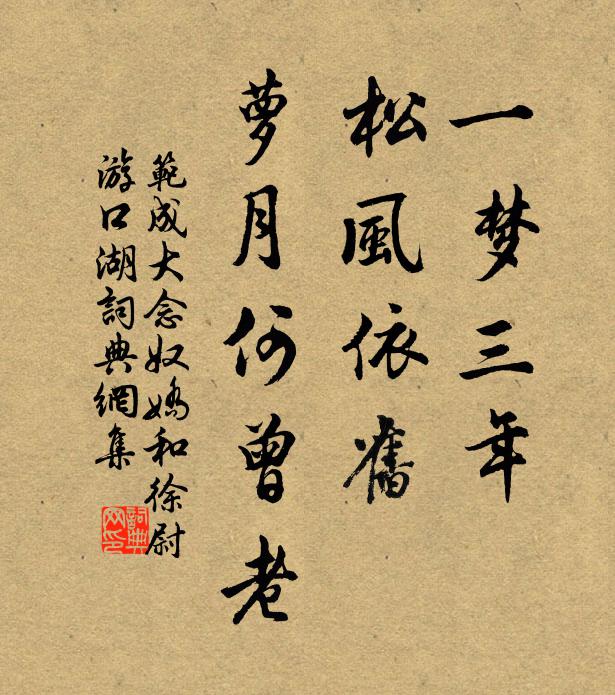 一梦三年
松風依舊
萝月何曾老
範成大念奴嬌和徐尉
游口湖詞典網集
詞典
网印